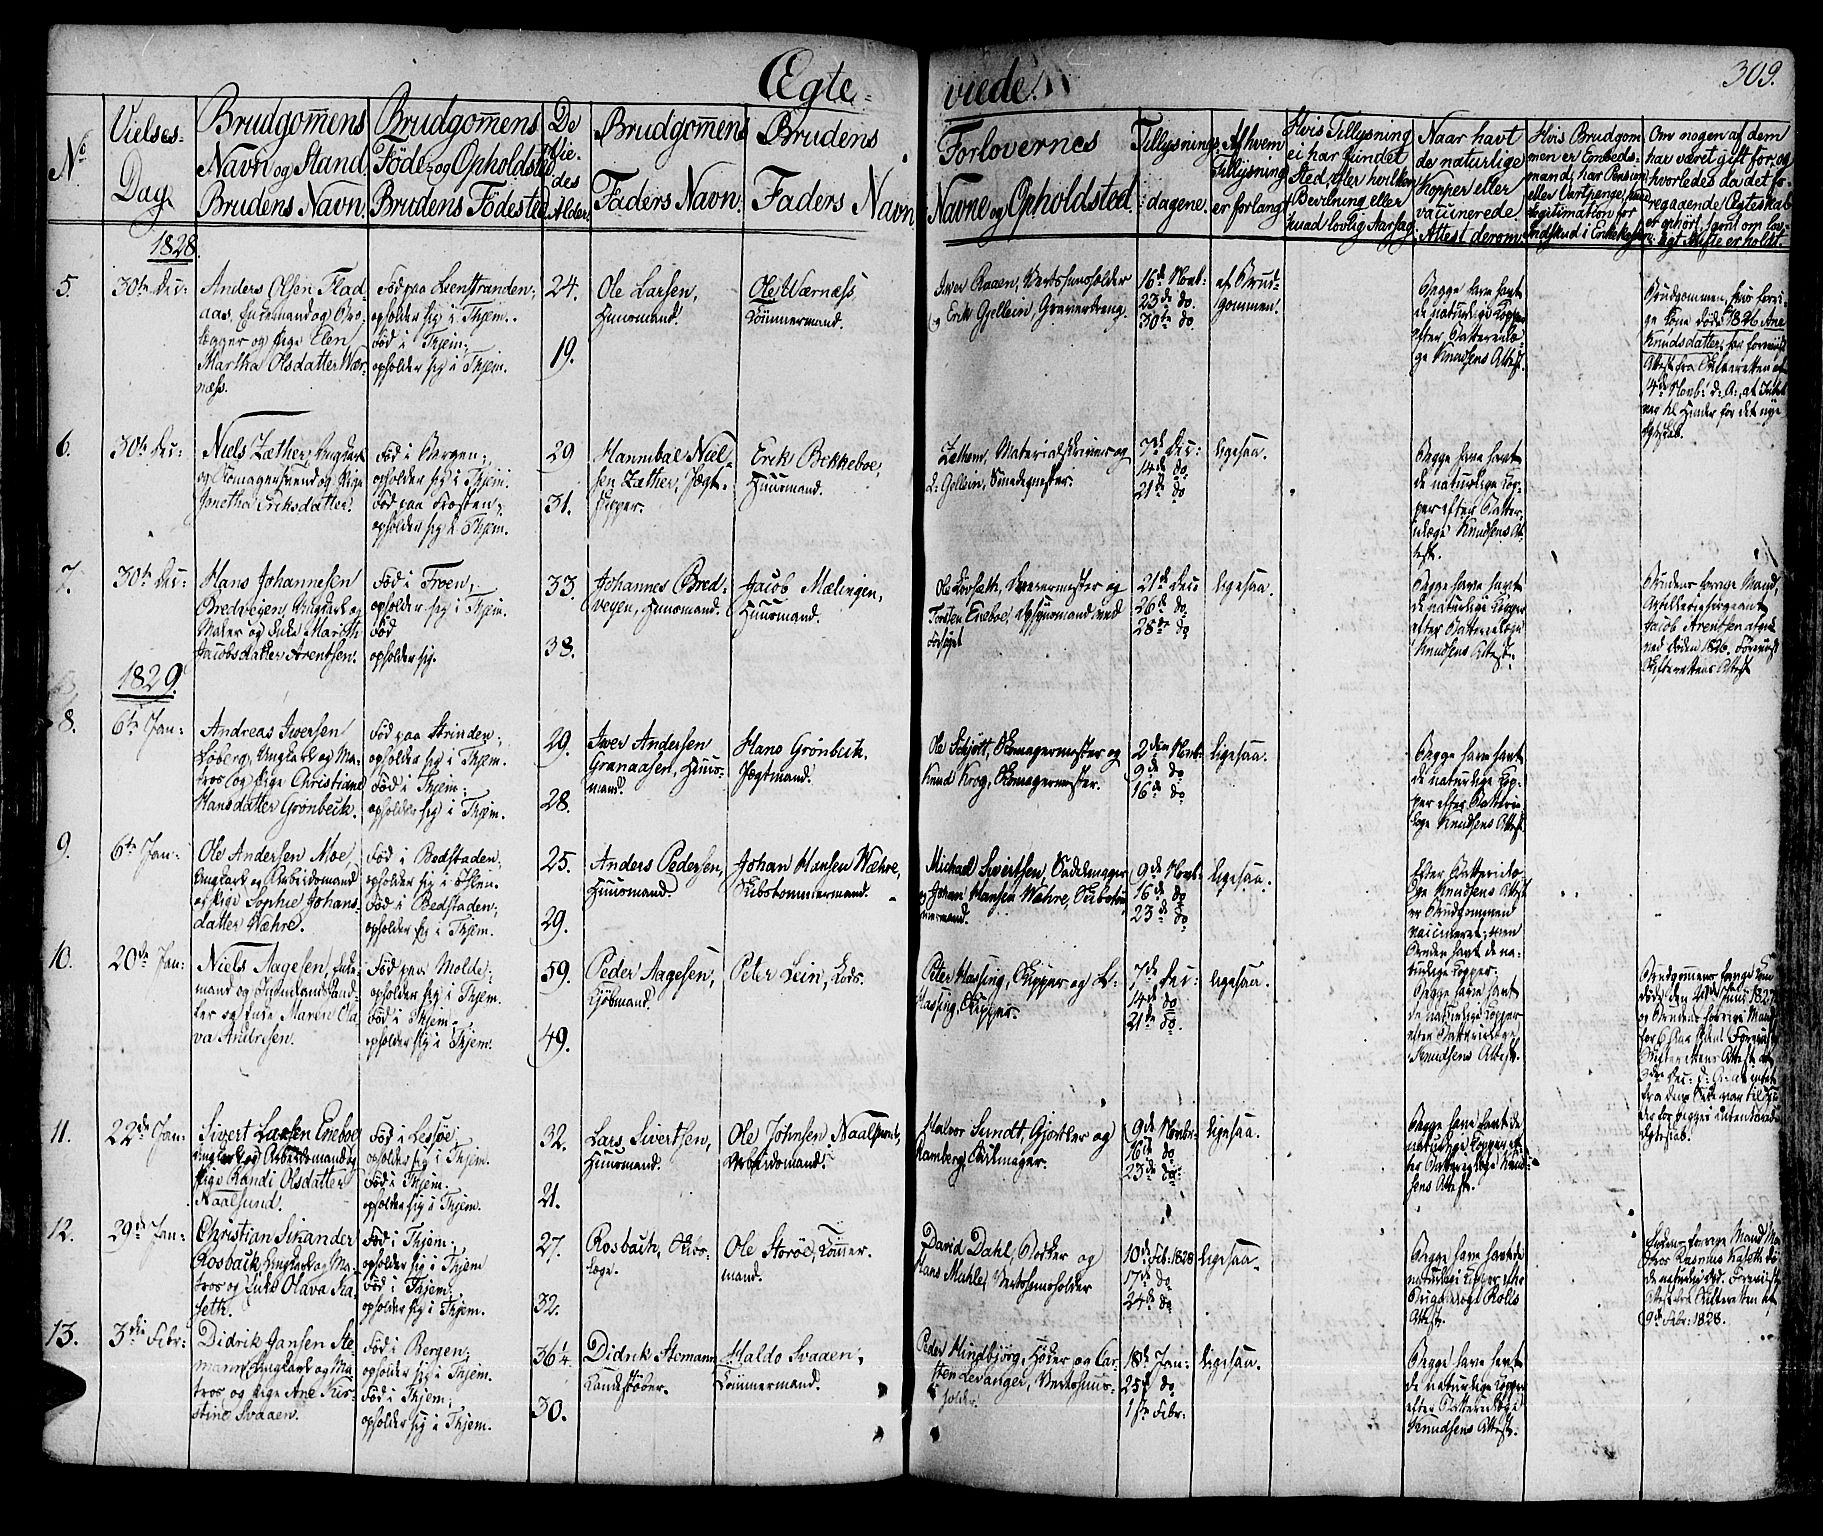 Ægte-
viede.
309.
No
Vielses-
Dag.
Brudgom̄ens
Navn og Stand,
Brudens Navn.
Brudgom̄ens
Föde- og Opholdsted
Brudens Födested
De
Vie-
des
Alder.
Brudgom̄ens
Faders Navn.
Brudens
Faders Navn
Forlovernes
Navne og Opholdsted.
Tillysnings
dagene.
Af hvem
Tillysning
er forlangt
Hvis Tillysning
ei har fundet
Sted, efter hvilken
Bevilning eller
hvad lovlig Aarsag
Naar havt
de naturlige
Kopper eller
vaccinerede
Attest derom.
Hvis Brudgom-
men er Embeds-
mand, har Pension
eller Vartpenge,
Legitimation for
Indskud i Enkekassen
Om nogen af dem
har været gift før, og
hvorledes da det fo-
regaaende Ægteskab
er ophørt, samt om lov-
ligt Skifte er holdt.
1828.
5.
30te Dec:
Anders Olsen Flad-
aas,
og Pige Elen
Martha Olsdatter Vær-
næss.
Föd paa Leenstranden;
opholder sig i Thjem.
Föd i Thjem;
opholder sig i Thjem.
24.
19.
Ole Larsen,
Huusmand.
Ole Wærnæss
Tömmermand.
Iver Raaen, Vertshuusholder
og Erik Gjellein,
16de Novb:
23de do
30te do
af Brud-
gommen.
Begge have havt
de naturlige Kopper
efter Batterielæ-
ge Knudsens Attest.
Brudgommens forri-
ge Kone døde 1826 Ane
Knudsdatter,
Attest fra Skifteretten
4de Novb: d: A:, at Intet
var til Hinder for det nye
Ægteskab.
6.
30te Dec:
Niels Zæther, Ungkarl
og Skomagersvend og Pige
Jonetha Eriksdatter.
Föd i Bergen;
opholder sig i Thjem.
Föd paa Frosten;
opholder sig i Thjem.
29
31.
Hannibal Niel-
sen Zæther, Jægt-
skipper.
Erik Bekkeboe,
Huusmand.
Lethem, Materialskriver og
Gjellein, Smedemester.
7de Dec:
14de do
21de do
ligesaa.
Begge have havt
de naturlige Kop-
per efter Batter-
ielæge Knudsens At-
test.
7.
30te Dec:
Hans Johannesen
Bredveyen, Ungkarl og
Maler og Enke Marith
Jacobsdatter Arentsen.
Föd i Froen;
opholder sig i Thjem.
Föd
opholder sig.
33.
38.
Johannes Bred-
veyen, Huusmand.
Jacob Mælingen,
Huusmand.
Ole Lovsæth, og
Torsten Eneboe,
21de Dec
26de do
28de do
ligesaa.
Begge have havt
de naturlige Kopper
efter Batterielæge
Knudsens Attest.
Brudens forrige Mand,
Artilleriesergeant
Jacob Arentsen afgik
ved Döden 1826. Foreviist
Skifterettens Attest
1829.
8.
6te Jan:
Andreas Iversen
Löberg, Ungkarl og Ma-
tros og Pige Christiane
Hansdatter Grönbeck.
Föd paa Strinden;
opholder sig i Thjem.
Föd i Thjem;
opholder sig i Thjem.
29.
28.
Iver Andersen
Granaasen, Huus-
mand.
Hans Grönbeck,
Jægtmand.
Ole Schjött, Skomagermester og
Knud Krog, Skomagermester.
2den Novb:
9de do
16de do
ligesaa.
Begge have havt
de naturlige Kop-
per efter Batterie-
læge Knudsens Attest
9.
6te Jan:
Ole Andersen Moe
Ungkarl og Arbeidsmand
og Pige Sophie Johans-
datter Wæhre.
Föd i Bedstaden;
opholder sig i
Föd i Bedstaden;
opholder sig i Thjem.
25.
29.
Anders Pedersen,
Huusmand.
Johan Hansen Wæhre,
Skibstömmermand.
Michael Sivertsen, Saddelmager
og Johan Hansen Wæhre, Skibstöm-
mermand.
9de Novb:
16de do
23de do
ligesaa.
Efter Batterielæ-
ge Knudsens Attest
er Brudgommen
vaccineret; men
Bruden havt de na-
turlige Kopper.
10.
20de Jan:
Niels Aagesen, Enke-
mand og
og Enke Maren Ola-
va Andresen.
Föd paa Molde;
opholder sig i Thjem.
Föd i Thjem;
opholder sig i Thjem.
59.
49.
Peder Aagesen,
Kjöbmand.
Peter Lein, Lods.
Peter Hassing, Skipper og
Hassing, Skipper.
7de Dec:
14de do
21de do.
ligesaa.
Begge have havt
de naturlige Kopper
efter Batterielæge
Knudsens Attest.
Brudgommens forrige Kone
döde den Juni 1827
og Brudens forrige Mand
for 6 Aar siden. Foreviist
Skifterettens Attest
3die Dec: d: A: at intet
fra dens Side var til Hin-
der for begges indtrædende
Ægteskab.
11.
22de Jan:
Sivert Larsen Eneboe
Ungkarl og Arbeidsmand og
Pige Randi Olsdatter
Naalsund.
Föd i Lessöe;
opholder sig i Thjem.
Föd i Thjem.
opholder sig i Thjem.
32.
21.
Lars Sivertsen,
Huusmand.
Ole Johnsen Naalsund,
Arbeidsmand.
Halvor Sundt, Gjörtler og
Ramberg,
9de Novbr:
16de do
23de do:
ligesaa.
Begge have havt de
naturlige Kopper ef-
ter Batterielæge Knud-
sens Attest.
12.
29de Jan:
Christian Sirander
Rosback, Ungkarl og Ma-
tros og Enke Olava Ka-
seth.
Föd i Thjem;
opholder sig i Thjem
Föd i Thjem;
opholder sig i Thjem.
27.
32.
Rosbach, Skibs-
læge.
Ole Storöe, Tömmer-
mand.
David Dahl, Bödker og
Hans Muhle, Vertshuusholder
10de Feb: 1828
17de do
24de do.
ligesaa.
Begge have havt de
naturlige Kopper efter
Brigadelæge Rolls
Attest.
Enkens forrige Mand Ma-
tros Rasmus Kaseth dö-
de Foreviist
Attest fra Skifteretten af
9de Febr: 1828.
13.
3die Febr:
Didrik Jansen Ste-
mann, Ungkarl og Ma-
tros og Pige Ane Kir-
stine Svaaen.
Föd i Bergen;
opholder sig i Thjem.
Föd i Thjem;
opholder sig i Thjem.
36¼.
30.
Didrik Stemann
Haldo Svaaen,
Tömmermand.
Peder Mindbjörg, og Car-
sten Levanger, Vertshuus-
holder.
18de Jan:
25de do
1ste Febr:
ligesaa.
Begge have havt
de naturlige Kopper
efter Batterielæge
Knudsens Attest.